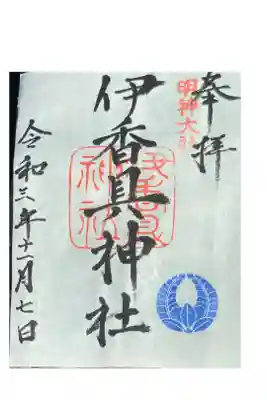 奉拝
明神大社
伊香具神社
令和三年十一月七日